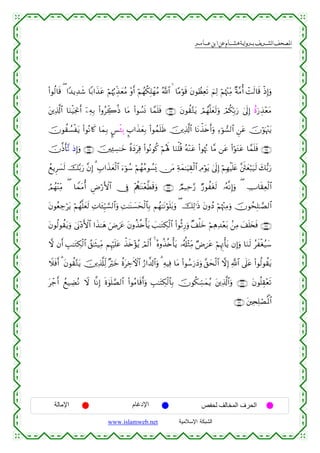 المصحف الشريف برواية هشام عن ابن عامر
وَإِذْ قَالَتْ أُمَّةٌ مِّنْهُمْ لِمَ تَعِظُونَ قَوْمًا ۙ اللَّهُ مُهْلِكُهُمْ أَوْ مُعَذِّبُهُمْ عَذَابًا شَدِيدًا ۖ قَالُوا۟
مَعْذِرَةٌ إِلَىٰ رَبِّكُمْ وَلَعَلَّهُمْ يَتَّقُونَ ۝ فَلَمَّا نَسُوا۟ مَا ذُكِّرُوا۟ بِهِۦٓ أَنجَيْنَا الَّذِينَ
يَنْهَوْنَ عَنِ السُّوٓءِ وَأَخَذْنَا الَّذِينَ ظَلَمُوا۟ بِعَذَابٍۭ بِئْسٍ بِمَا كَانُوا۟ يَفْسُقُونَ
۝ فَلَمَّا عَتَوْا۟ عَن مَّا نُهُوا۟ عَنْهُ قُلْنَا لَهُمْ كُونُوا۟ قِرَدَةً خَاسِئِينَ ۝ وَإِذْ تَأَذَّنَ
رَبُّكَ لَيَبْعَثَنَّ عَلَيْهِمْ إِلَىٰ يَوْمِ الْقِيَامَةِ مَن يَسُومُهُمْ سُوٓءَ الْعَذَابِ ۗ إِنَّ رَبَّكَ لَسَرِيعُ
الْعِقَابِ ۖ وَإِنَّهُۥ لَغَفُورٌ رَّحِيمٌ ۝ وَقَطَّعْنَاهُمْ فِي الْأَرْضِ أُمَمًا ۖ مِّنْهُمُ
الصَّالِحُونَ وَمِنْهُمْ دُونَ ذَٰلِكَ ۖ وَبَلَوْنَاهُم بِالْحَسَنَاتِ وَالسَّيِّئَاتِ لَعَلَّهُمْ يَرْجِعُونَ
۝ فَخَلَفَ مِنۢ بَعْدِهِمْ خَلْفٌ وَرِثُوا۟ الْكِتَابَ يَأْخُذُونَ عَرَضَ هَٰذَا الْأَدْنَىٰ وَيَقُولُونَ
سَيُغْفَرُ لَنَا وَإِن يَأْتِهِمْ عَرَضٌ مِّثْلُهُۥ يَأْخُذُوهُ ۚ أَلَمْ يُؤْخَذْ عَلَيْهِم مِّيثَاقُ الْكِتَابِ أَن لَّا
يَقُولُوا۟ عَلَى اللَّهِ إِلَّا الْحَقَّ وَدَرَسُوا۟ مَا فِيهِ ۗ وَالدَّارُ الْآخِرَةُ خَيْرٌ لِّلَّذِينَ يَتَّقُونَ ۗ أَفَلَا
تَعْقِلُونَ ۝ وَالَّذِينَ يُمَسِّكُونَ بِالْكِتَابِ وَأَقَامُوا۟ الصَّلَوٰةَ إِنَّا لَا نُضِيعُ أَجْرَ
الْمُصْلِحِينَ ۝
الحرف المخالف لحفص الإدغام الإمالة
الشبكة الإسلامية www.islamweb.net